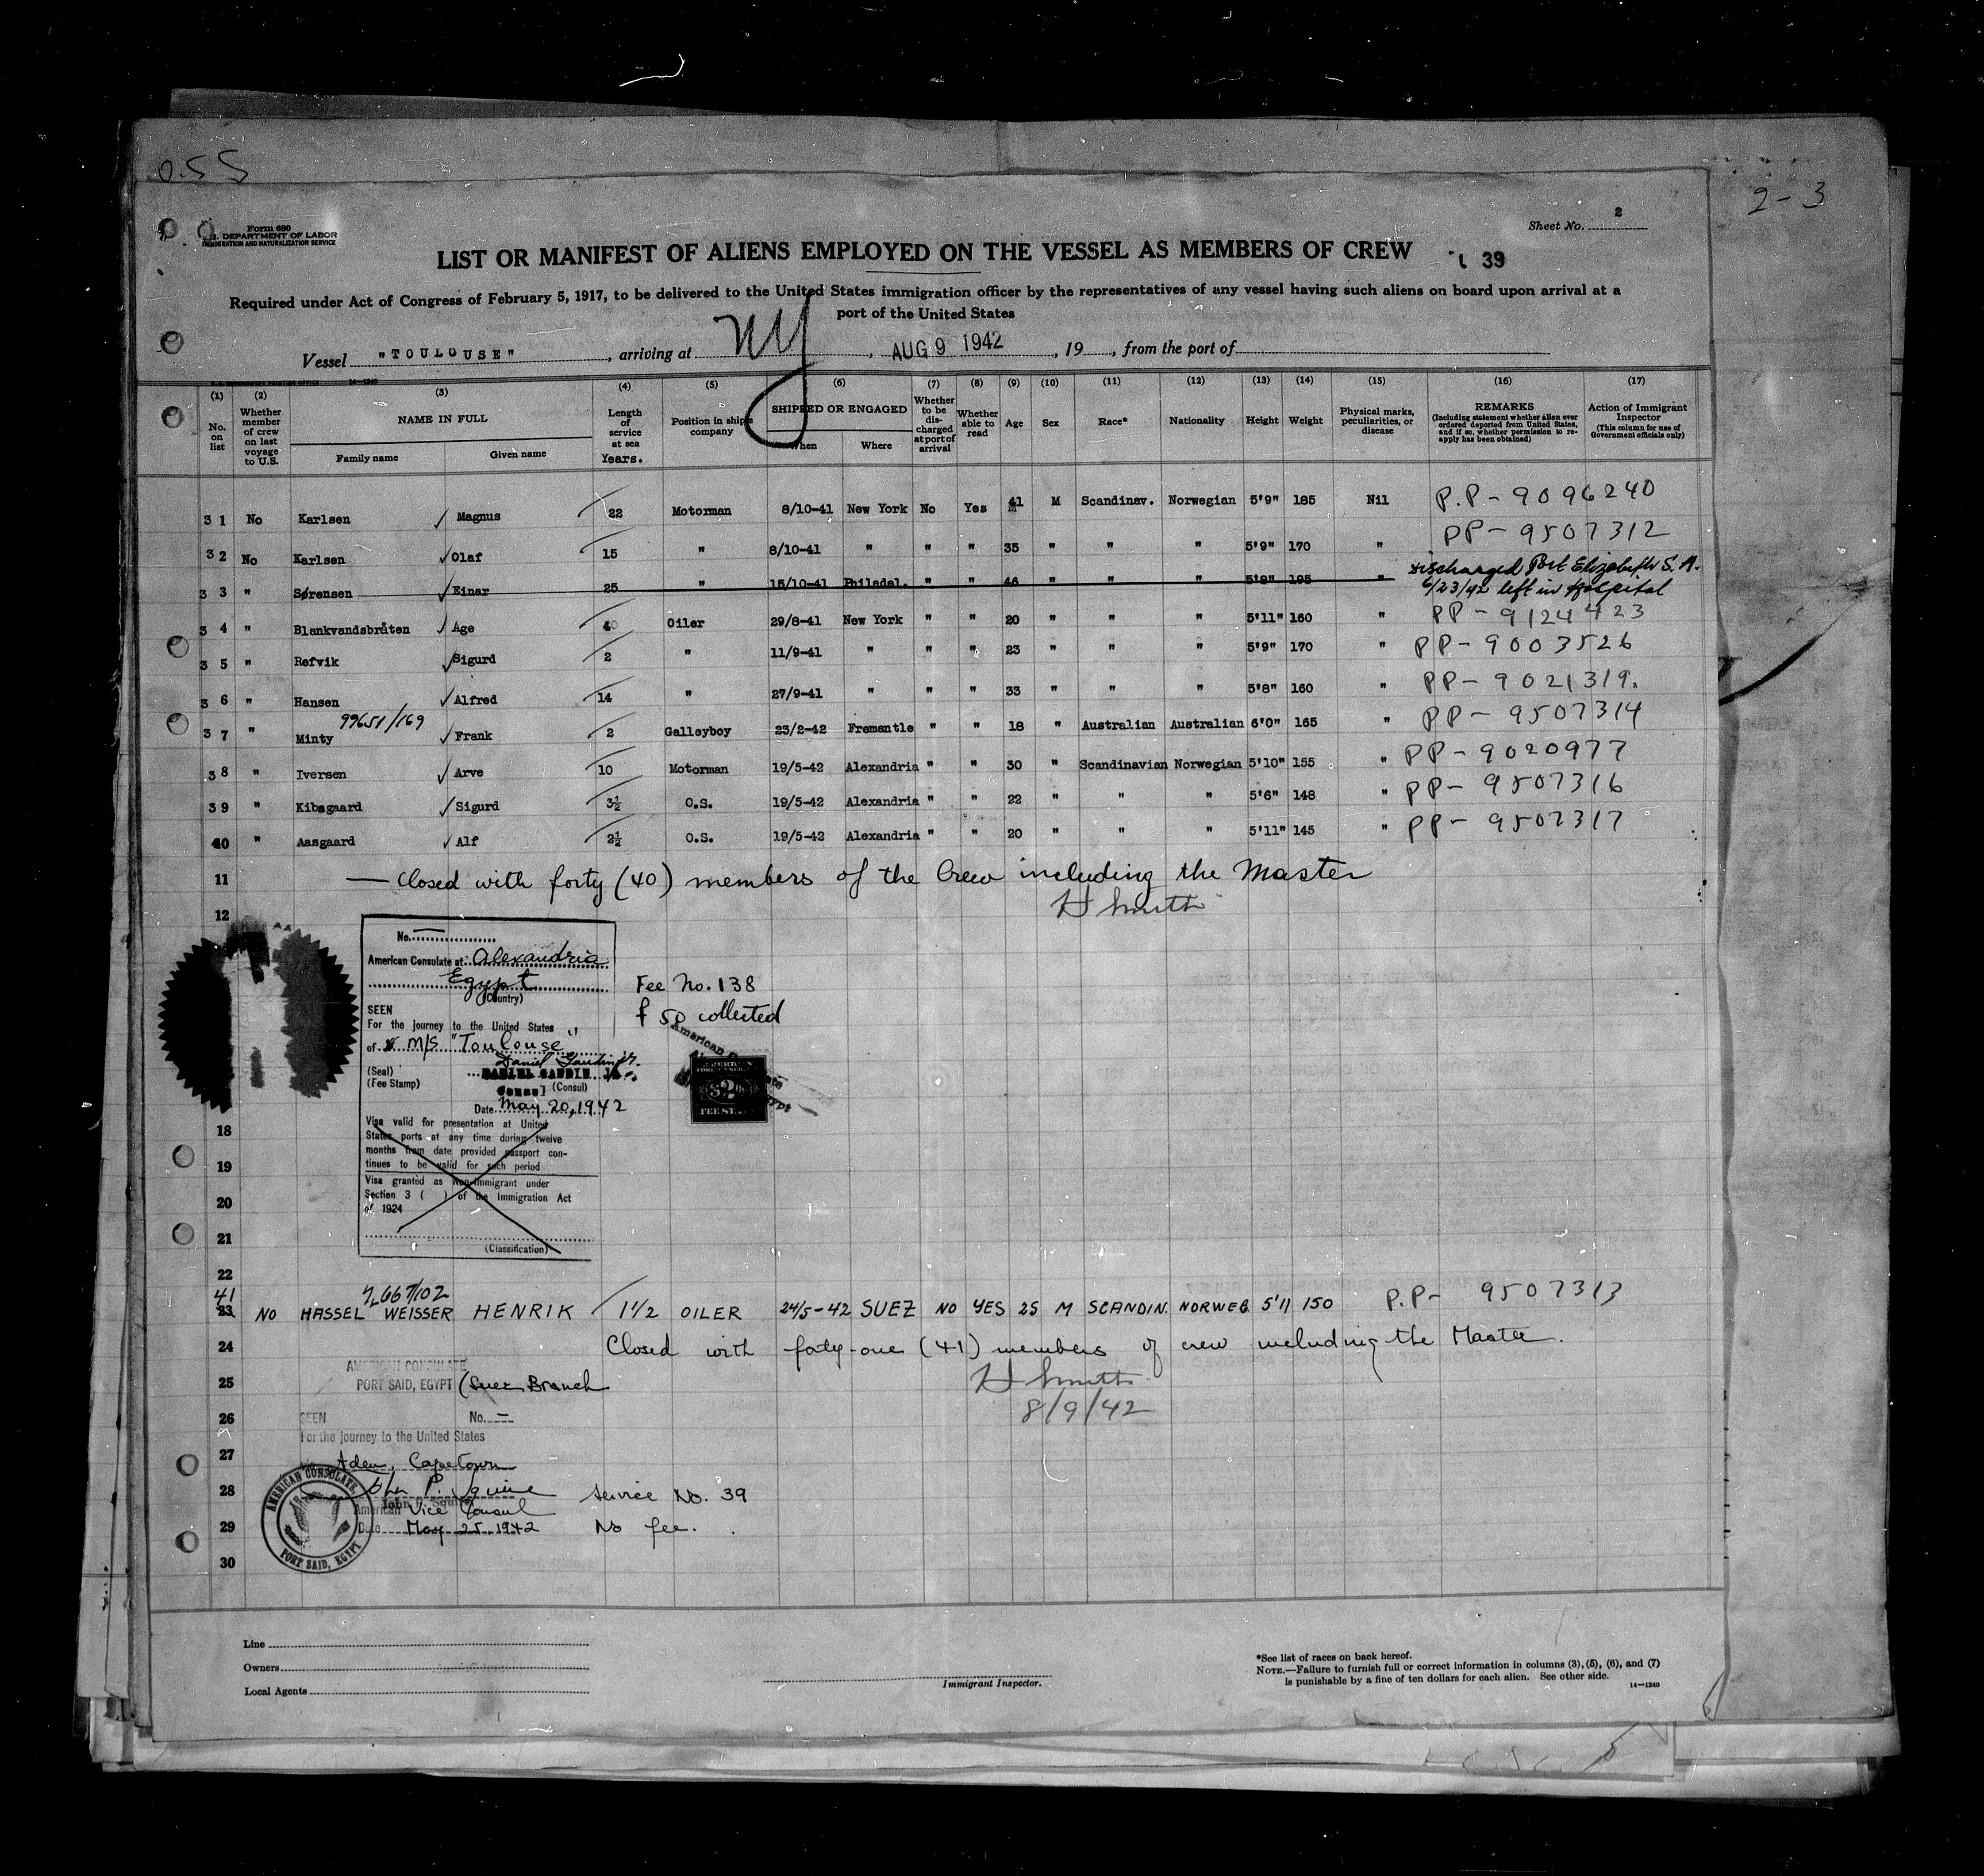 0.55
2-3
Form 680
U.S. DEPARTMENT OF LABOR
IMMIGRATION AND NATURALIZATION SERVICE
Sheet No. 2
LIST OR MANIFEST OF ALIENS EMPLOYED ON THE VESSEL AS MEMBERS OF CREW
39
Required under Act of Congress of February 5, 1917, to be delivered to the United States immigration officer by the representatives of any vessel having such aliens on board upon arrival at a
port of the United States
Vessel "TOULOUSE", arriving at NY, AUG 9 1942, 19, from the port of
(1) No. on list
(2) Whether member of crew on last voyage to U.S.
(3) NAME IN FULL Family name Given name
(4) Length of service at sea Years.
(5) Position in ship's company
(6) SHIPPED OR ENGAGED When Where
(7) Whether to be discharged at port of arrival
(8) Whether able to read
(9) Age
(10) Sex
(11) Race*
(12) Nationality
(13) Height
(14) Weight
(15) Physical marks, peculiarities, or disease
(16) REMARKS (Including statement whether alien ever ordered deported from United States, and if so, whether permission to reapply has been obtained)
(17) Action of Immigrant Inspector (This column for use of Government officials only)
31 No Karlsen ✓ Magnus 22 Motorman 8/10-41 New York No Yes 41 M Scandinav. Norwegian 5'9" 185 Nil P.P-9096240
32 No Karlsen ✓ Olaf 15 " 8/10-41 " " " 35 " " " 5'9" 170 " PP-9507312
33 " Sørensen Einar 25 " 15/10-41 Philadel. " " 46 " " " 5'8" 195 " Discharged Port Elizabeth S.A.
6/23/42 left in Hospital
34 " Blankvandsbråten ✓ Age 40 Oiler 29/8-41 New York " " 20 " " " 5'11" 160 " PP-9124423
35 " Refvik ✓ Sigurd 2 " 11/9-41 " " " 23 " " " 5'9" 170 " PP-9003526
36 " Hansen ✓ Alfred 14 " 27/9-41 " " " 33 " " " 5'8" 160 " PP-9021319.
99651/169
37 " Minty ✓ Frank 2 Galleyboy 23/2-42 Fremantle " " 18 " Australian Australian 6'0" 165 " PP-9507314
38 " Iversen ✓ Arve 10 Motorman 19/5-42 Alexandria " " 30 " Scandinavian Norwegian 5'10" 155 " PP-9020977
39 " Kibsgaard ✓ Sigurd 3½ O.S. 19/5-42 Alexandria " " 22 " " " 5'6" 148 " PP-9507316
40 " Aasgaard ✓ Alf 2½ O.S. 19/5-42 Alexandria " " 20 " " " 5'11" 145 " PP-9507317
11 — Closed with forty (40) members of the Crew including the Master
12 H Smith
No.
American Consulate at Alexandria
Egypt
(Country)
SEEN
For the journey to the United States
of M/S "Toulouse"
(Seal)
(Fee Stamp)
Consul (Consul)
Date May 20, 1942
Visa valid for presentation at United
States ports at any time during twelve
months from date provided passport con-
tinues to be valid for such period
Visa granted as Non-immigrant under
Section 3 ( ) of the Immigration Act
of 1924
(Classification)
Fee No. 138
collected
18
19
20
21
22
41
23 NO HASSEL WEISSER HENRIK 1 1/2 OILER 24/5-42 SUEZ NO YES 25 M SCANDIN. NORWEG. 5'11 150 P.P- 9507313
24 Closed with forty-one (41) members of crew including the Master.
AMERICAN CONSULATE
25 PORT SAID, EGYPT (Suez Branch H Smith
8/9/42
26 SEEN No. —
For the journey to the United States
27 Aden, Capetown
28 John P. Squire Service No. 39
American Vice Consul
29 Date May 25, 1942 No fee.
30
AMERICAN CONSULATE,
PORT SAID, EGYPT
Line
Owners
Local Agents
Immigrant Inspector.
*See list of races on back hereof.
NOTE.—Failure to furnish full or correct information in columns (3), (5), (6), and (7)
is punishable by a fine of ten dollars for each alien. See other side.
14—1240